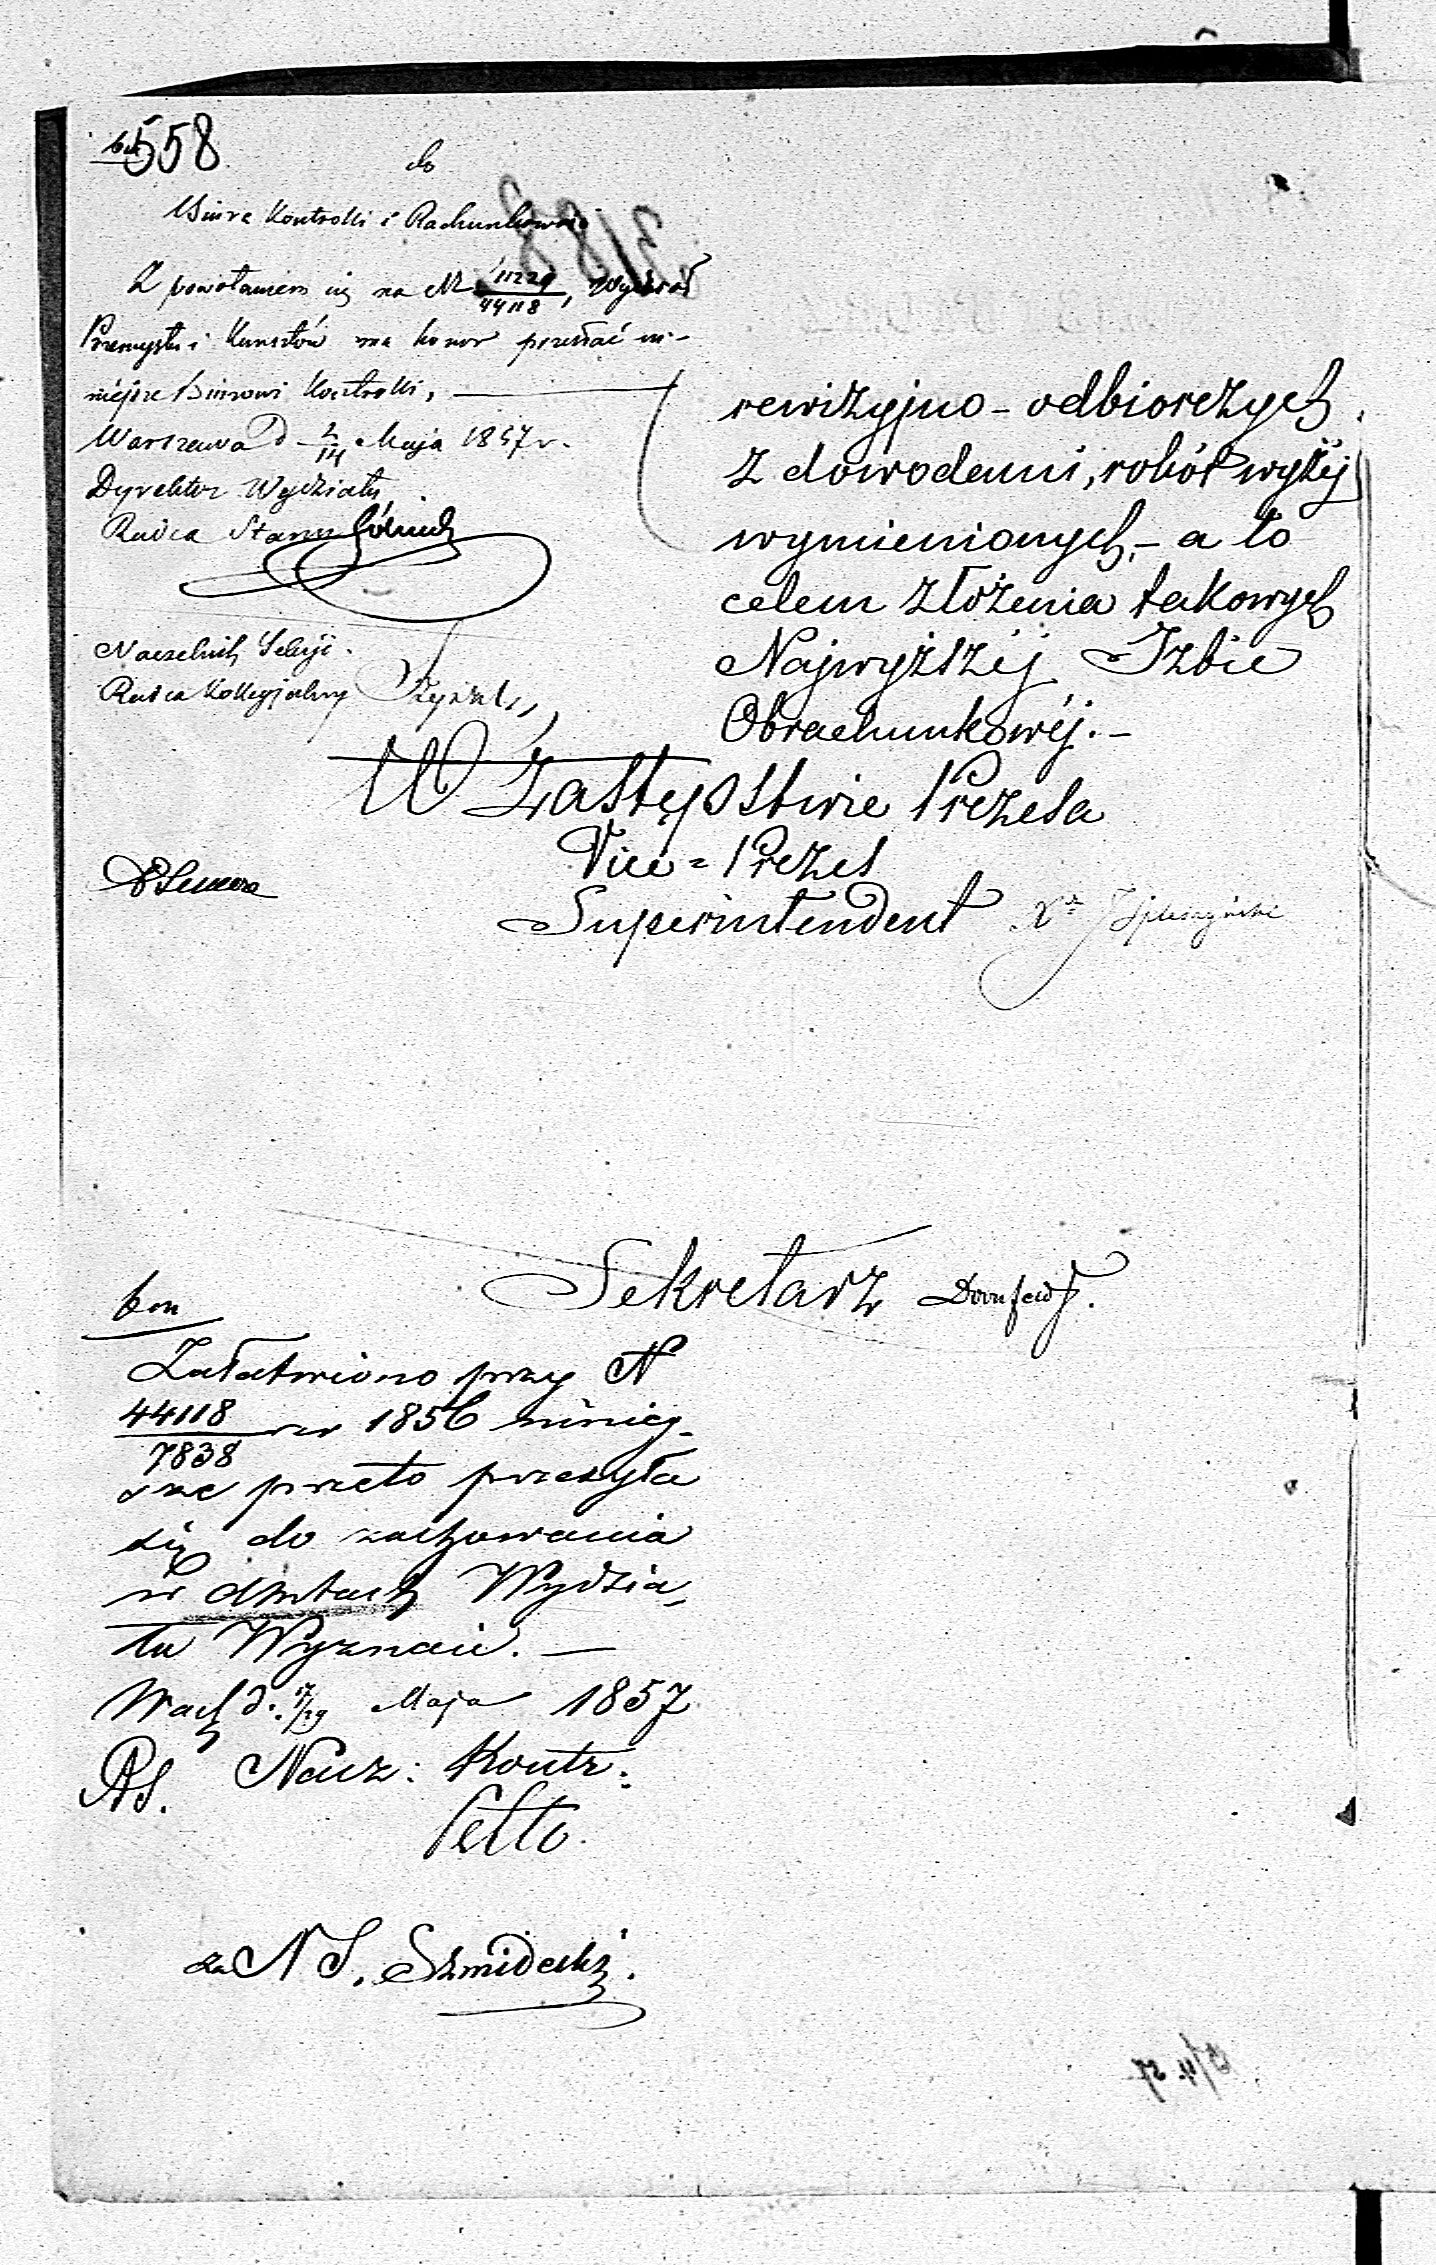 558
do
Biura Kontrolli i Rachunkowości
Z powołaniem się na N 11229/44118, Wydział
Przemysłu i Kunsztów ma honor przesłać ni-
niejsze Biurowi Kontrolli,
Warszawa d 2/14 Maja 1857 r.
Dyrektor Wydziału,
Radca Stanu
Naczelnik Sekcji.
Radca Kollegjalny
rewizyjno-odbiorczych
z dowodami, robót wyżéj
wymienionych, - a to
celem złożenia takowych
Najwyższéj Izbie
Obrachunkowéj. -
W Zastępstwie Prezesa
Vice = Prezes
Superintendent
Sekretarz
bm
Załatwiono przy N
44118/7838 w 1856 niniej-
sze przeto przesyła
się do zachowania
w aktach Wydzia-
łu Wyznań. -
Wach d. 17/29 Maja 1857
RS. Nacz: Kontr:
za N S. Szmidecki.